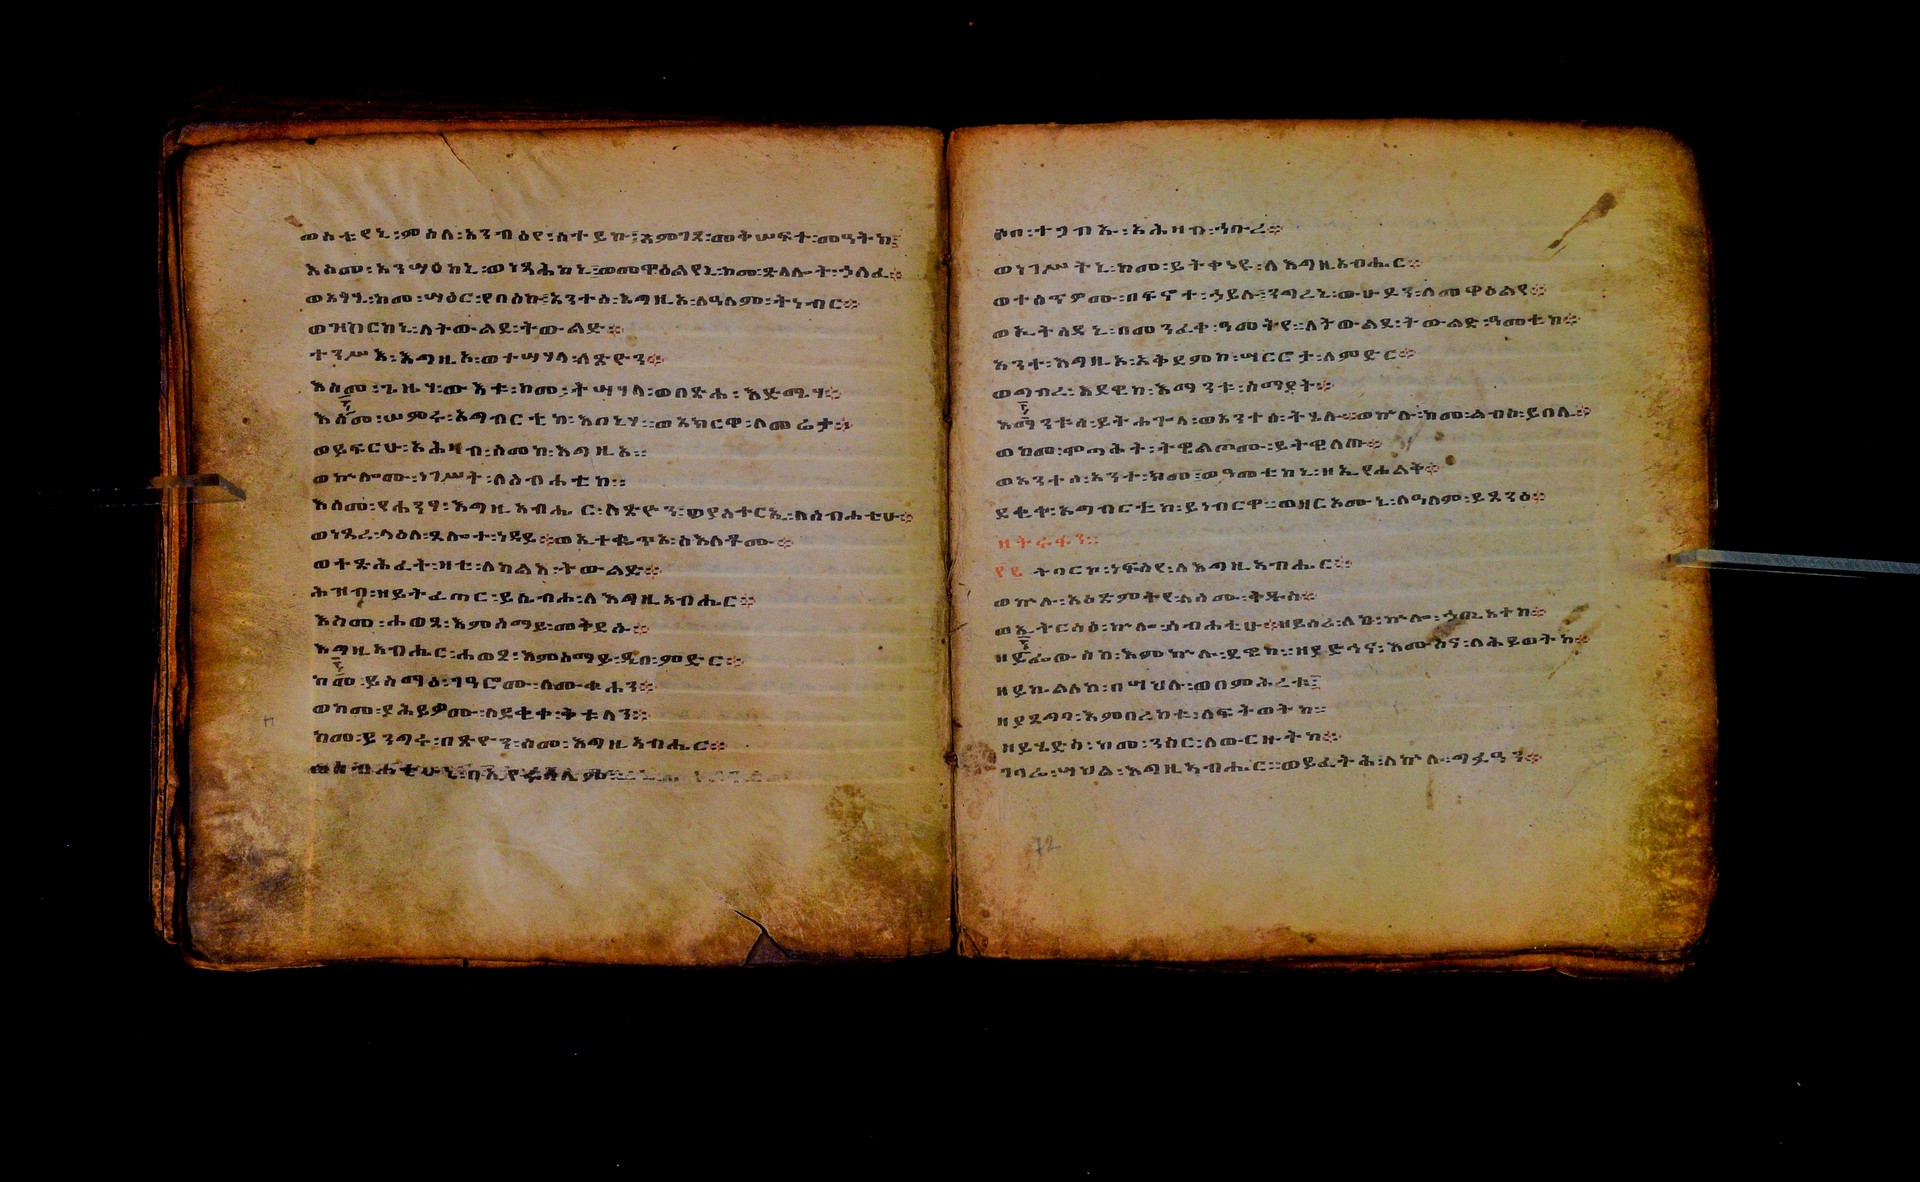 ወስቴየኒ፡ምስለ፡አንብዕየ፡ሰተይኩ፤እምገጸ፡መቅሠፍተ፡መዓትከ፤
እስመ፡አንሣዕከኒ፡ወነጻሕከኒ፤ወመዋዕልየኒ፡ከመ፡ጽላሎት፡ኃለፈ።
ከመ፡ሣዕር፡የበስኩ፤አንተሰ፡እግዚኦ፡ለዓለም፡ትነብር።
ወዝክርከኒ፡ለትውልደ፡ትውልድ።
ተንሥእ፡እግዚኦ፡ወተሣሃላ፡ለጽዮን።
እስመ፡ጊዜሃ፡ውእቱ፡ከመ፡ትሣሃላ፡ወበጽሐ፡እድሜሃ።
እስመ፡ሠምሩ፡አግብርቲከ፡እበኒሃ፡ወአክርዋ፡ለመሬታ።
ወይፍርሁ፡አሕዛብ፡ስመከ፡እግዚኦ።
ወኵሎሙ፡ነገሥት፡ለስብሐቲከ።
እስመ፡የሐንፃ፡እግዚአብሔር፡ለጽዮን፡ወያስተርኢ፡በስብሐቲሁ።
ወነጸረ፡ላዕለ፡ጸሎተ፡ነዳይ።ወኢተቈጥዐ፡ስእለቶሙ።
ወተጽሕፈት፡ዛቲ፡ለካልእ፡ትውልድ።
ሕዝብ፡ዘይትፈጠር፡ይሴብሖ፡ለእግዚአብሔር።
እስመ፡ሐወጸ፡እምሰማይ፡መቅደሱ።
እግዚአብሔር፡ሐወጸ፡እምሰማይ፡ዲበ፡ምድር።
ከመ፡ይስማዕ፡ገዓሮሙ፡ለሙቁሐን።
ወከመ፡ያሕይዎሙ፡ለደቂቀ፡ቅቱላን።
ከመ፡ይንግሩ፡በጽዮን፡ስመ፡እግዚአብሔር።
ወስብሐቲሁኒ፡በኢየሩሳሌም
ሶበ፡ተጋብኡ፡አሕዛብ፡ኅቡረ።
ወነገሥትኒ፡ከመ፡ይትቀነዩ፡ለእግዚአብሔር።
ወተሰጥዎሙ፡በፍኖተ፡ኃይሉ፡ንግረኒ፡ውሁደን፡ለመዋዕልየ።
ወኢትሰደኒ፡በመንፈቀ፡ዓመትየ፡ለትውልደ፡ትውልድ፡ዓመቲከ።
አንተ፡እግዚኦ፡አቅደምከ፡ሣርሮታ፡ለምድር።
ወግብረ፡እደዊከ፡እማንቱ፡ሰማያት።
እማንቱሰ፡ይትሐጐላ፡ወአንተሰ፡ትሄሉ።ወኵሉ፡ከመ፡ልብስ፡ይበሊ።
ወከመ፡ሞጣሕት፡ትዌልጦሙ፡ይትዌለጡ።
ወአንተሰ፡አንተ፡ክመ፡ወዓመቲከኒ፡ዘኢየሐልቅ።
ደቂቀ፡አግብርቲከ፡ይነብርዋ።ወዘርእሙኒ፡ለዓለም፡ይጸንዕ።
ትባርኮ፡ነፍስየ፡ለእግዚአብሔር።
ወኵሉ፡አዕጽምትየ፡ለስሙ፡ቅዱስ።
ወኢትርስዒ፡ኵሎ፡ስብሐቲሁ።ዘይሰሪ፡ለኪ፡ኵሎ፡ኃጢአተኪ።
ዘይፌውሰኪ፡እምኵሉ፡ደዌኪ።ዘያድኅና፡እሙስና፡ለሕይወትኪ።
ዘይኬልለኪ፡በሣህሉ፡ወበምሕረቱ፤
ዘያጸግባ፡እምበረከቱ፡ለፍትወትኪ።
ዘይሄድስ፡ከመ፡ንስር፡ለውርዙትኪ።
ገባሬ፡ሣህል፡እግዚአብሔር።ወይፈትሕ፡ለኵሉ፡ግፉዓን።
72